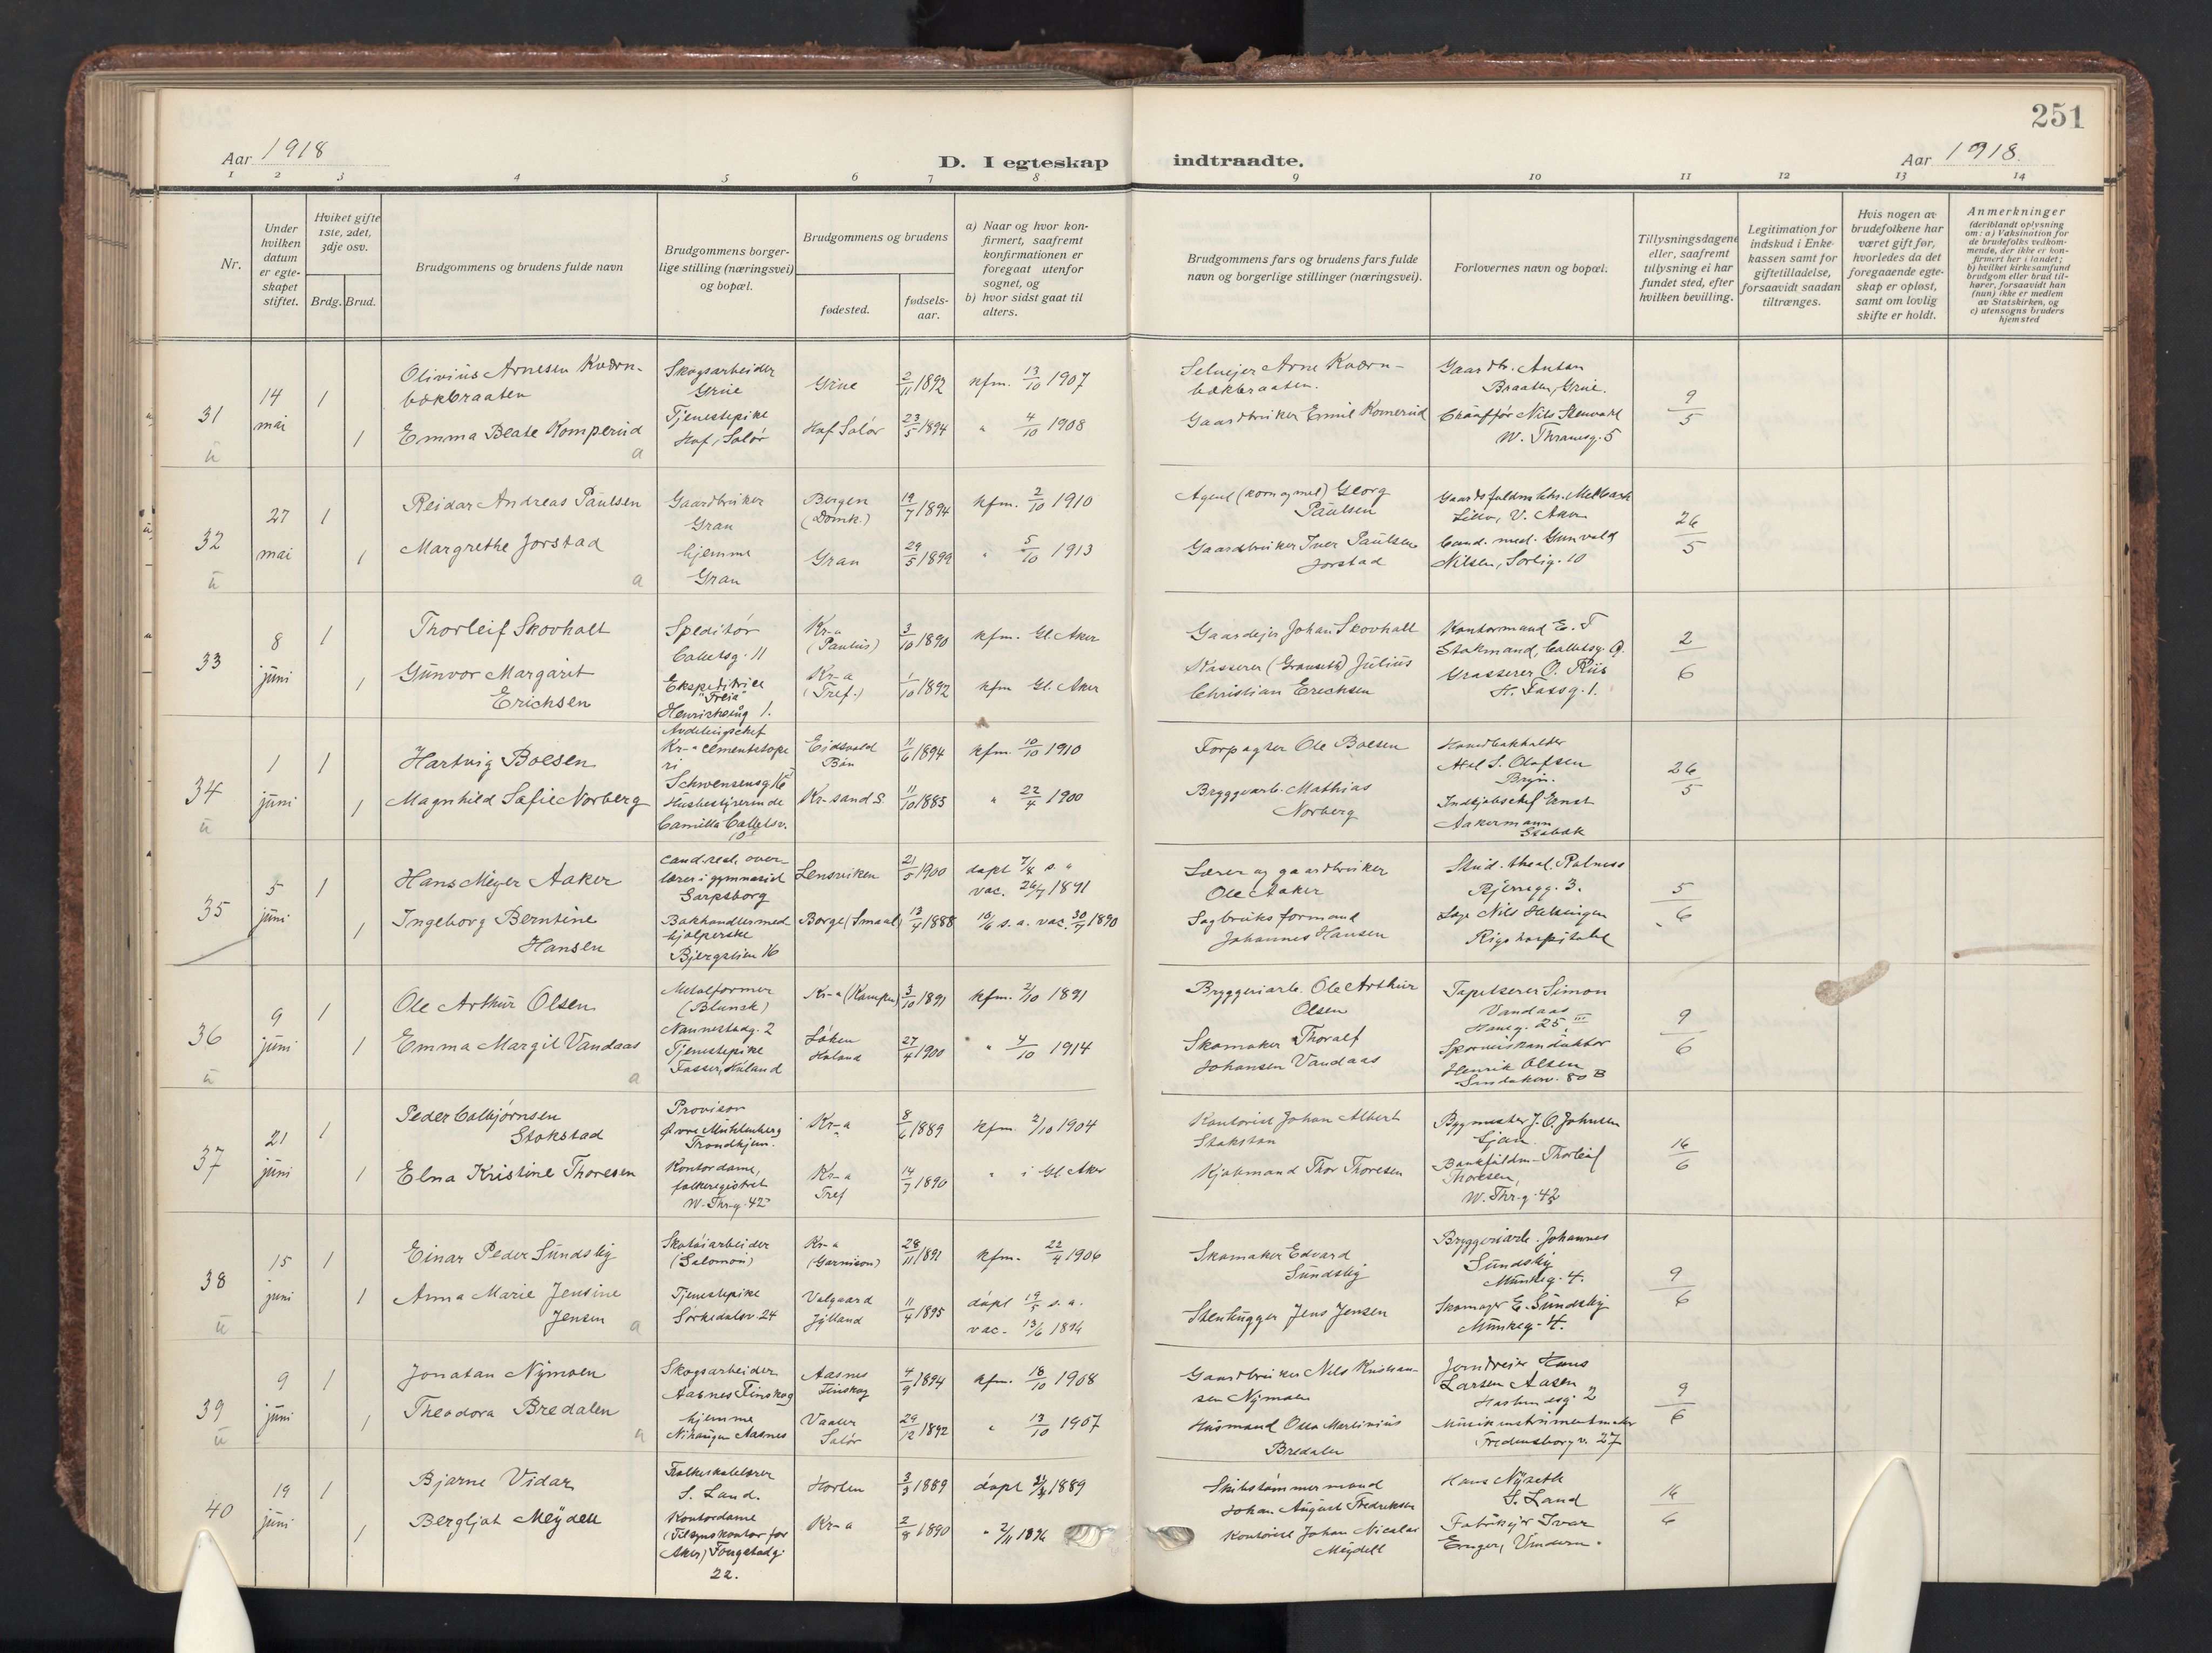 251
Aar 1918
D. I egteskap indtraadte.
Aar 1918.
1 2 3 4 5 6 7 8 9 10 11 12 13 14
Nr.
Under hvilken datum er egte- skapet stiftet.
Hviket gifte 1ste, 2det, 3dje osv.
Brdg. Brud.
Brudgommens og brudens fulde navn
Brudgommens borger- lige stilling (næringsvei) og bopæl.
Brudgommens og brudens
fødested.
fødsels- aar.
a) Naar og hvor kon- firmert, saafremt konfirmationen er foregaat utenfor sognet, og
b) hvor sidst gaat til alters.
Brudgommens fars og brudens fars fulde navn og borgerlige stillinger (næringsvei).
Forlovernes navn og bopæl.
Tillysningsdagene eller, saafremt tillysning ei har fundet sted, efter hvilken bevilling.
Legitimation for indskud i Enke- kassen samt for giftetilladelse, forsaavidt saadan tiltrænges.
Hvis nogen av brudefolkene har været gift før, hvorledes da det foregaaende egte- skap er opløst, samt om lovlig skifte er holdt.
Anmerkninger (deriblandt oplysning om: a) Vaksination for de brudefolks vedkom- mende, der ikke er kon- firmert her i landet; b) hvilket kirkesamfund brudgom eller brud til- hører, forsaavidt han (hun) ikke er medlem av Statskirken, og c) utensogns bruders hjemsted
31
14 mai
1
Olivius Arnesen Kværn-
bækbraaten
Skogsarbeider
Grue
Grue
2/11 1892
kfm. 13/10 1907
Selveier Arne Kværn-
bækbraaten.
Gaardbr. Anton
Braaten, Grue.
9/5
1
Emma Beate Komperud
a
Tjenestepike
Hof, Solør
Hof Solør
23/5 1894
" 4/10 1908
Gaardbruker Emil Komerud
Chauffør Nils Stenvahl
W. Thranesg. 5
32
27 mai
1
Reidar Andreas Paulsen
Gaardbruker
Gran
Bergen
(Domk.)
19/7 1894
kfm. 2/10 1910
Agent (korn og mel) Georg
Paulsen
Gaardsfuldm. Chr. Melbach
V. Aker
26/5
1
Margrethe Jorstad
a
hjemme
Gran
Gran
29/5 1899
" 5/10 1913
Gaardbruker Iver Paulsen
Jorstad
Cand. med. Gunvald
Nilsen, Sorlig. 10
33
8 juni
1
Thorleif Skovholt
Speditør
Colletsg. 11
Kr-a
(Paulus)
3/10 1890
kfm. Gl. Aker
Gaardejer Johan Skovholt
Kontormand E. F.
Stokmand, Colletsg. 9.
2/6
1
Gunvor Margarit
Erichsen
Ekspeditrice
"Freia"
1.
Kr-a
(Tref.)
1/10 1892
kfm Gl. Aker
Kasserer Julius
Christian Erichsen
Grosserer O. Riis
H. Fossg. 1.
34
1 juni
1
Hartvig Boesen
Avdelingschef
Kr-a cementstøpe
ri
Schwensensg 16
Eidsvold
Bøn
11/6 1894
kfm. 10/10 1910
Forpagter Ole Boesen
Haandbakholder
Axel S. Olafsen
Bryn.
26/5
1
Magnhild Sofie Norberg
Husbestyrerinde
Camilla Colletsv.
10
Kr.sand S.
11/10 1885
" 22/4 1900
Bryggarb. Mathias
Norberg
Indkjøbschef Ernst
Aakermann
Stabæk
35
5 juni
1
Hans Meyer Aaker
cand. real. over-
lærer i gymnasiet
Sarpsborg
Lensviken
1900
døpt 7/8 s. a
vac. 26/7 1891
Lærer og gaardbruker
Ole Aaker
Stud. theol. Ralness
Bjerregg. 3.
5/6
1
Ingeborg Berntine
Hansen
Bokhandlermed
hjælperske
Bjergstien 16
Borge (Smaal)
13/4 1888
10/6 s. a. vac. 30/7 1890
Sagbruksformand
Johannes Hansen
Læge Nils Helsingen
Rigshospitalet
36
9 juni
1
Ole Arthur Olsen
Metalformer
(Blunck)
Nannestadg. 2
Kr-a (Kampen)
3/10 1891
kfm. 2/10 1891
Bryggeriarb. Ole Arthur
Olsen
Tapetserer Simon
Vandaas
Hansg. 25 III
9/6
1
Emma Margit Vandaas
a
Tjenestepike
Fosser, Høland
Løken
Høland
27/4 1900
" 4/10 1914
Skomaker Thoralf
Johansen Vandaas
Sporveiskonduktør
Henrik Olsen
Sandakerv. 80 B
37
21 juni
1
Peder Colbjørnsen
Stokstad
Provisor
Øvre Møllenberg
Trondhjem.
Kr-a
8/6 1889
kfm. 2/10 1904
Kontorist Johan Albert
Stokstad
Bygmester J. O. Johnsen
Ljan.
16/6
1
Elna Kristine Thoresen
Kontordame,
folkeregistret
W. Thr-g. 42
Kr-a
Tref
14/7 1890
" i Gl Aker
Kjøbmand Thor Thoresen
Bankfuldm. Thorleif
Thoresen,
W. Thr.g. 42
38
15 juni
1
Einar Peder Sundsby
Skotøiarbeider
(Salomon)
Kr-a
(Garnison)
28/11 1891
kfm. 22/4 1906
Skomaker Edvard
Sundsby
Bryggeriarb. Johannes
Sundsby
Munkeg. 4.
9/6
1
Anna Marie Jensine
Jensen
a
Tjenestepike
Sørkedalsv. 24
Valgaard
Jylland
11/4 1895
døpt 19/5 s. a.
vac. 13/6 1896
Stenhugger Jens Jensen
Skomager E. Sundsby
Munkeg. 4.
39
9 juni
1
Jonatan Nymoen
Skogsarbeider
Aasnes Finskog
Aasnes
Finskog
4/9 1894
kfm. 18/10 1908
Gaardbruker Nils Kristian-
sen Nymoen
Jerndreier Hans
Larsen Aasen
2
9/6
1
Theodora Bredalen
a
hjemme
Aasnes
Vaaler
Solør
29/12 1892
" 13/10 1907
Husmand Otto Martinius
Bredalen
Musikinstrumentmaker
Fredensborgv. 27
40
19 juni
1
Bjarne Vidar
Folkeskolelærer
S. Land.
Horten
3/3 1889
døpt 1889
Skibstømmermand
Johan August Fredriksen
Hans Nyseth
S. Land
16/6
1
Bergljot Meydell
Kontordame
(Tilsynskontor for
Aker) Fougstadg.
22.
Kr-a
2/8 1890
" 2/11 1896
Kontorist Johan Nicolai
Meydell
Fabrikejer Ivar
Enger, Vindern.